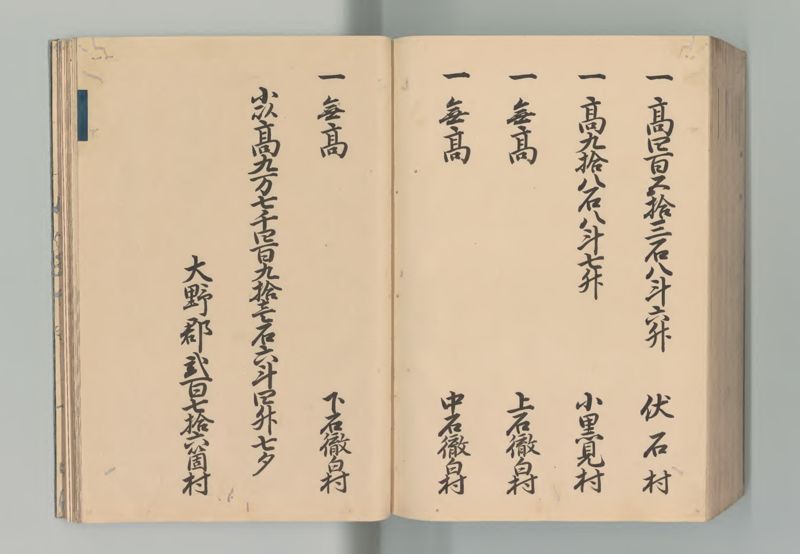 一 高四百五拾三石八斗六升 伏石村
一 高九拾八石八斗七升 小黒見村
一 無高 上石徹白村
一 無高 中石徹白村
一 無高 下石徹白村
小以高九万七千四百九拾壱石六斗四升七夕
大野郡弐百七拾六箇村